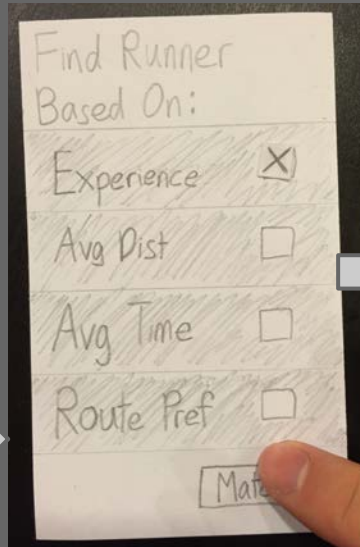 Find Runner
Based On:
Experience
Avg Dist
Avg Time
Route Pref